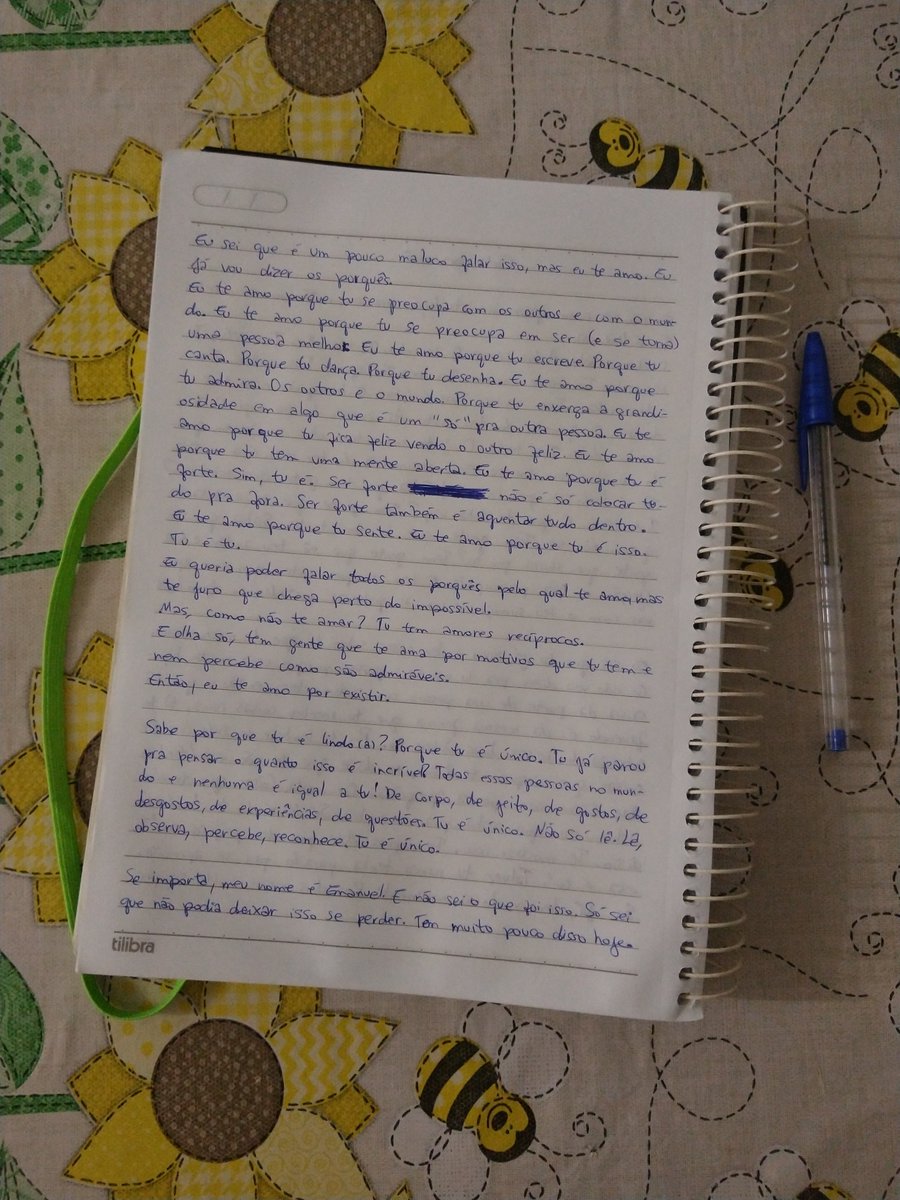 Eu sei que é um pouco maluco falar isso, mas eu te amo. Eu
já vou dizer os porquês.
Eu te amo porque tu se preocupa com os outros e com o mun-
do. Eu te amo porque tu se preocupa em ser (e se torna)
uma pessoa melhor. Eu te amo porque tu escreve. Porque tu
canta. Porque tu dança. Porque tu desenha. Eu te amo porque
tu admira. Os outros e o mundo. Porque tu enxerga a grandi-
osidade em algo que é um "só" pra outra pessoa. Eu te
amo porque tu fica feliz vendo o outro feliz. Eu te amo
porque tu tem uma mente aberta. Eu te amo porque tu é
forte. Sim, tu é. Ser forte não é só colocar tu-
do pra fora. Ser forte também é aguentar tudo dentro.
Eu te amo porque tu sente. Eu te amo porque tu é isso.
Tu é tu.
Eu queria poder falar todos os porquês pelo qual te amo, mas
te juro que chega perto do impossível.
Mas, como não te amar? Tu tem amores recíprocos.
E olha só, tem gente que te ama por motivos que tu tem e
nem percebe como são admiráveis.
Então, eu te amo por existir.
Sabe por que tu é lindo(a)? Porque tu é único. Tu já parou
pra pensar o quanto isso é incrível? Todas essas pessoas no mun-
do e nenhuma é igual a tu! De corpo, de jeito, de gostos, de
desgostos, de experiências, de questões. Tu é único. Não só lê. Lê,
observa, percebe, reconhece. Tu é único.
Se importa, meu nome é Emanuel. E não sei o que foi isso. Só sei
que não podia deixar isso se perder. Tem muito pouco disso hoje.
tilibra